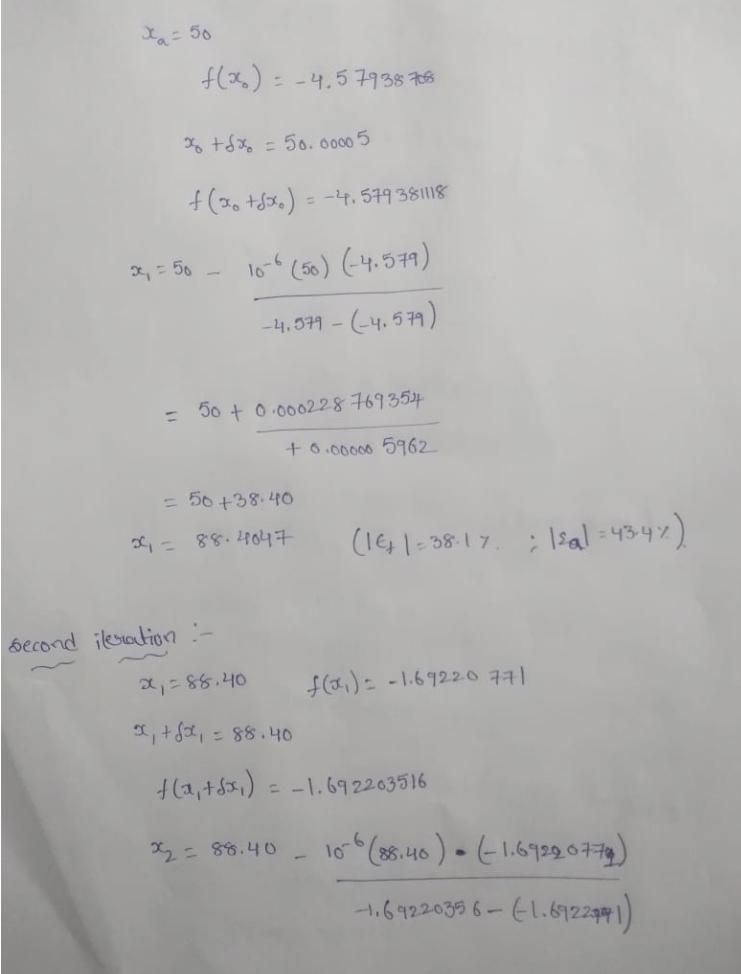 xₐ = 50
f(x₀) = -4.57938708
x₀ + δx₀ = 50.00005
f(x₀ + δx₀) = -4.579381118
x₁ = 50 - 10⁻⁶ (50) (-4.579)
-4.579 - (-4.579)
= 50 + 0.000228769354
+ 0.00000 5962
= 50 + 38.40
x₁ = 88.4047 (|εₜ| = 38.1 %. ; |εa| = 43.4 %)
second iteration :-
x₁ = 88.40 f(x₁) = -1.69220 771
x₁ + δx₁ = 88.40
f(x₁ + δx₁) = -1.692203516
x₂ = 88.40 - 10⁻⁶ (88.40) • (-1.6922077
-1.69220356 - (-1.6922